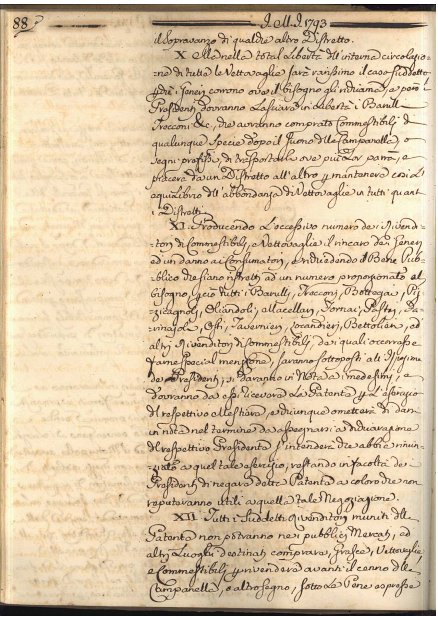 88
J. M. J. 1793
il Sopravanzo di qualche altro Distretto.
X. Ma nella total Libertà dell'interna circolazio-
-ne di tutte le Vettovaglie sarà rarissimo il caso suddetto
perchè i Generi corrono ove il bisogno gli richiama, e però i
Presidenti dovranno Lasciare in Libertà i Barulli
Trecconi &c., che avranno comprato Commestibili di
qualunque Specie dopo il suono della Campanella, o
segni prefissi, di trasportarli ove più Lor parrà, e
piacerà da un Distretto all'altro per mantenere così l'
equilibrio dell'abbondanza di Vettovaglie in tutti quanti
i Distretti.
XI. Producendo l'eccessivo numero dei Rivendi-
-tori di Commestibili, e Vettovaglie il rincaro dei Generi
ed un danno ai Consumatori, e richiedendo il Bene Pub-
-blico che siano ristretti ad un numero proporzionato al
bisogno, perciò tutti i Barulli, Trecconi, Bottegai, Pi-
-zzicagnoli, Oliandoli, Macellari, Fornai, Pastai, Fa-
-rinajoli, Osti, Tavernieri, Locandieri, Bettolieri, ed
altri Rivenditori di Commestibili, de' quali occorresse
farne special menzione, saranno sottoposti alle Ispezioni
de' Presidenti, si daranno in Nota ai medesimi, e
dovranno da essi ricevere la Patente per l'esercizio
del respettivo Mestiere, e chiunque ometterà di darsi
in nota nel termine da assegnarsi a dichiarazione
del respettivo Presidente s'intenderà che abbia rinun-
-ziato a quel tale esercizio, restando in facoltà de'
Presidenti di negare dette Patenti a coloro che non
reputeranno utili a quella tale Negoziazione.
XII. Tutti i Suddetti Rivenditori muniti della
Patente non potranno ne' pubblici Mercati, ed
altri Luoghi destinati comprare, Grasce, Vettovaglie,
e Commestibili per rivendere avanti il cenno della
Campanella, o altro segno, sotto Le Pene espresse